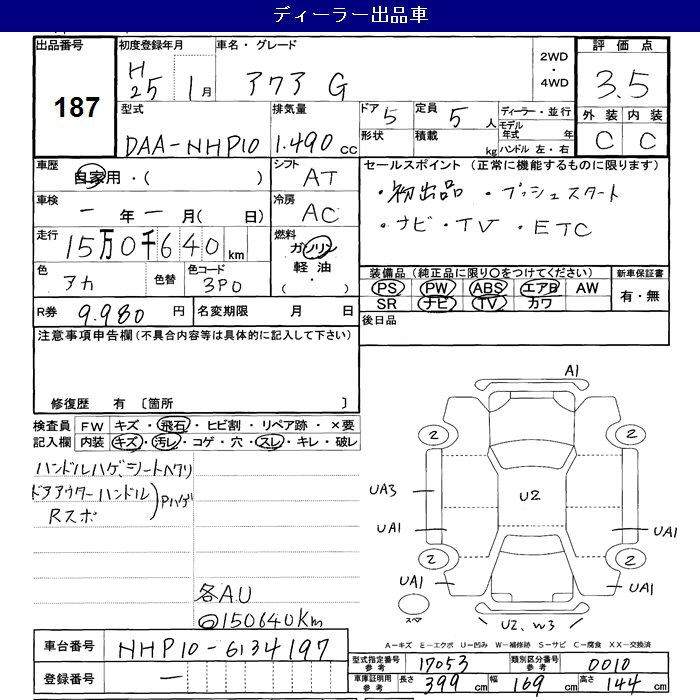 ディーラー出品車
出品番号 初度登録年月 車名・グレード 2WD・4WD 評価点
187 H25 1月 アクア G 3.5
型式 排気量 ドア 5 定員 5人 ディーラー・並行 外装 内装
DAA-NHP10 1.490 cc 形状 積載 kg モデル年式 年式 C C
ハンドル 左・右
車歴 自家用・( ) シフト AT セールスポイント (正常に機能するものに限ります)
車検 ー年ー月( 日) 冷房 AC ・初出品 ・プッシュスタート
・ナビ・TV ・ETC
走行 15万0千640km 燃料 ガソリン・軽油・( )
色 アカ 色替 色コード 3P0 装備品 (純正品に限り〇をつけてください) 新車保証書
PS PW ABS エアB AW 有・無
SR ナビ TV カワ
R券 9.980円 名変期限 月 日 後日品
注意事項申告欄(不具合内容等は具体的に記入して下さい)
修復歴 有 〔箇所 〕
検査員 FW キズ・飛石・ヒビ割・リペア跡・×要
記入欄 内装 キズ・汚レ・コゲ・穴・スレ・キレ・破レ
ハンドルハゲ、シートヘタリ
ドアアウターハンドル Pハゲ
Rスポ
各AU
◎150640Km
A1
2 2
UA3 U2
UA1 UA1
2 2
UA1 UA1
スペア
U2、W3
A-キズ E-エクボ U-凹み W-補修跡 S-サビ C-腐食 XX-交換済
車台番号 NHP10-6134197
登録番号 ー
型式指定番号 参考 17053 類別区分番号 参考 0010
車庫証明用 参考 長さ 399cm 幅 169cm 高さ 144cm